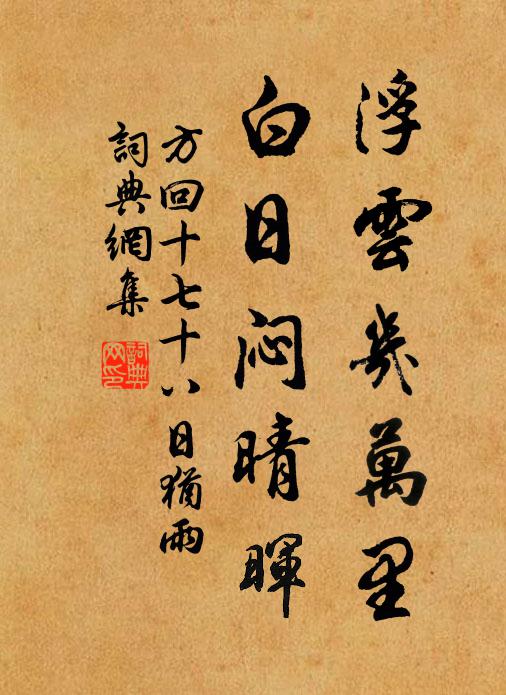 浮雲幾萬里
白日悶晴暉
方回十七十八日猶雨
詞典網集
詞典
网印